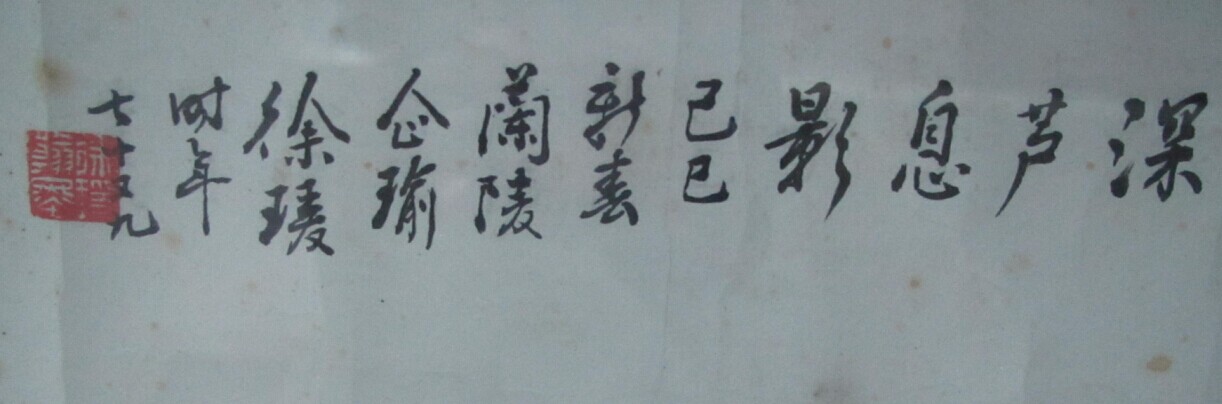 深芦息影
己巳
新春
蘭陵
企瑜
徐
时年
七十九